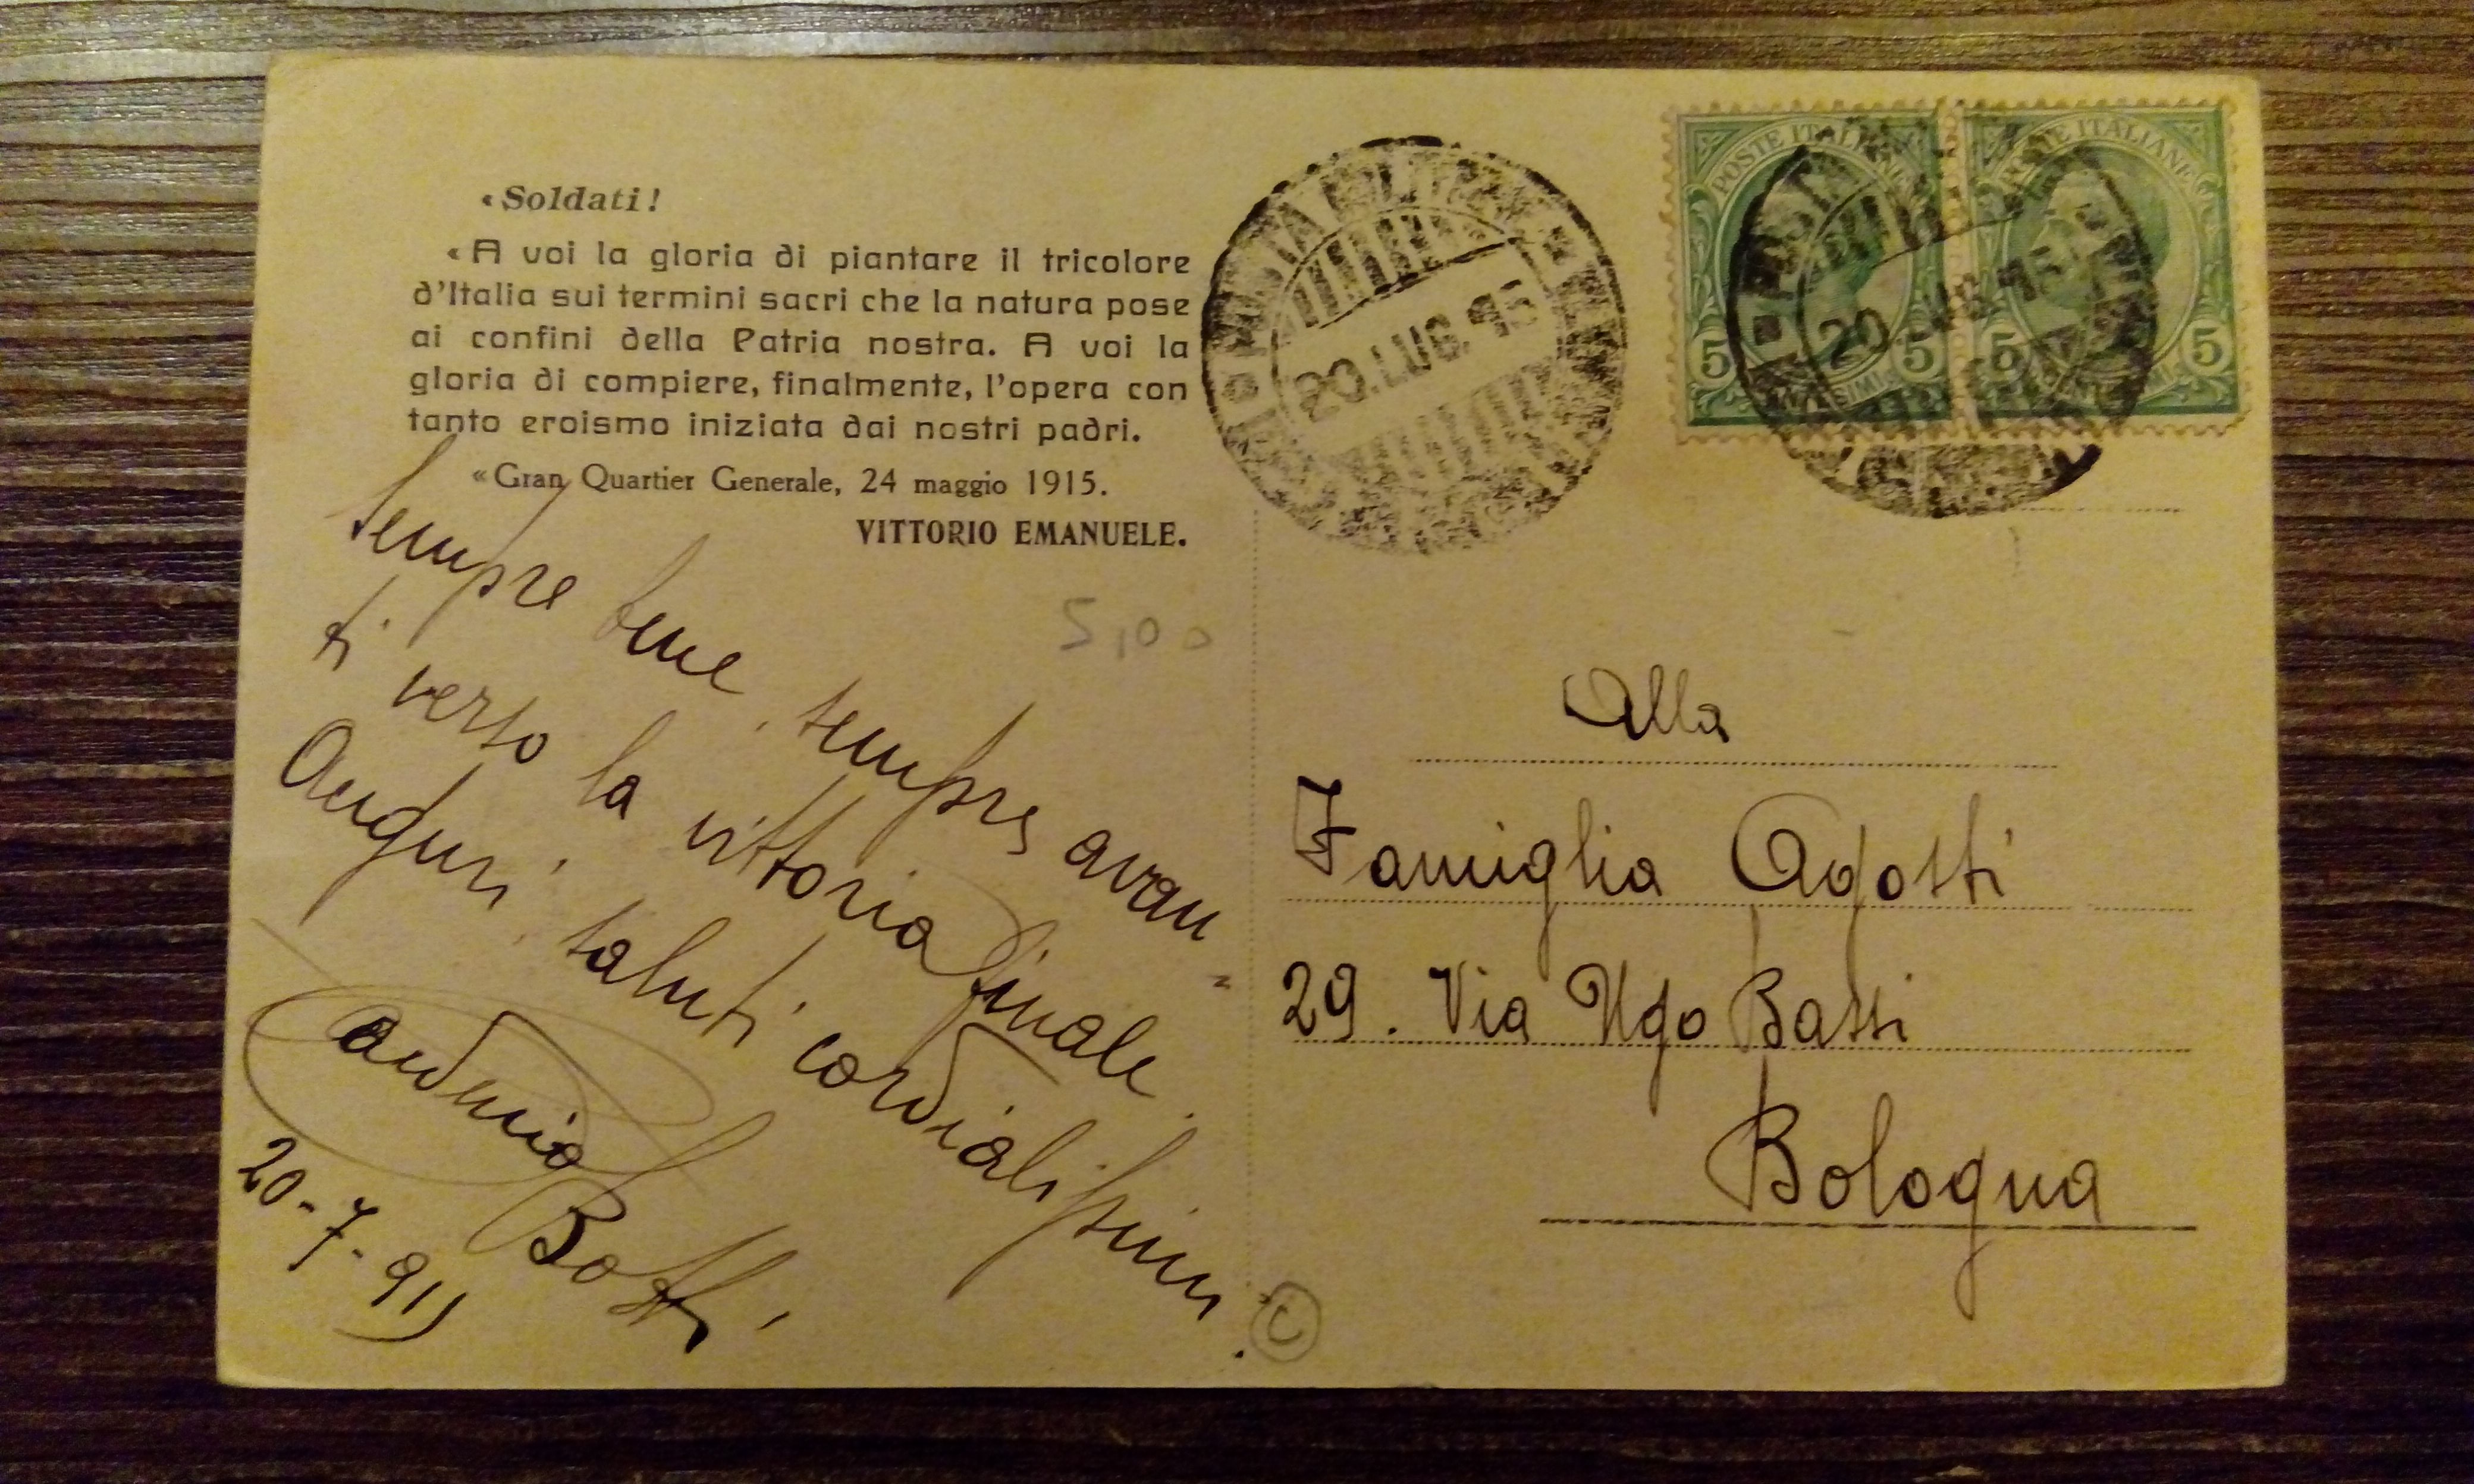 «Soldati!
«A voi la gloria di piantare il tricolore
d'Italia sui termini sacri che la natura pose
ai confini della Patria nostra. A voi la
gloria di compiere, finalmente, l'opera con
tanto eroismo iniziata dai nostri padri.
«Gran Quartier Generale, 24 maggio 1915.
VITTORIO EMANUELE.
5,00
Sempre bene, sempre avan
ti verso la vittoria finale.
Auguri, saluti cordialissimi.
Botti
20-7-915
C
POSTA MILITARE
20.LUG.15
POSTE ITALIANE
5 5
CENTESIMI
POSTE ITALIANE
5 5
CENTESIMI
20
Alla
Famiglia Agosti
29. Via Ugo Bassi
Bologna